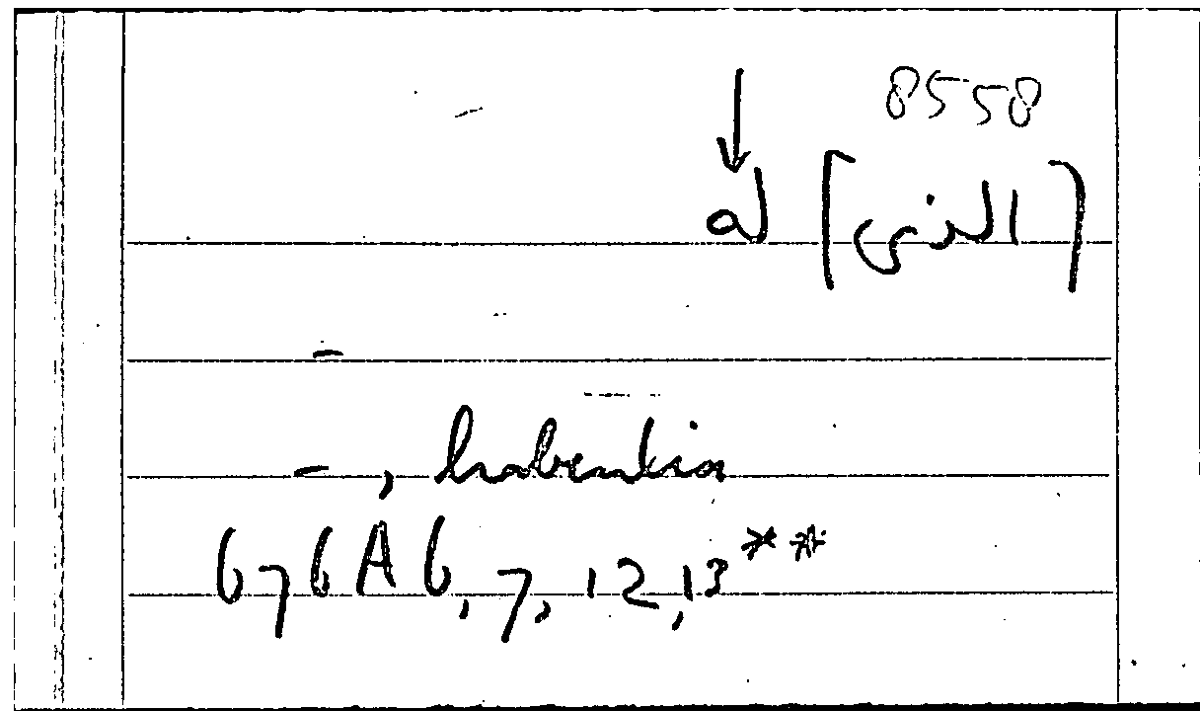 8558
[الذي] له
-
-, habentia
676A6,7,12,13**